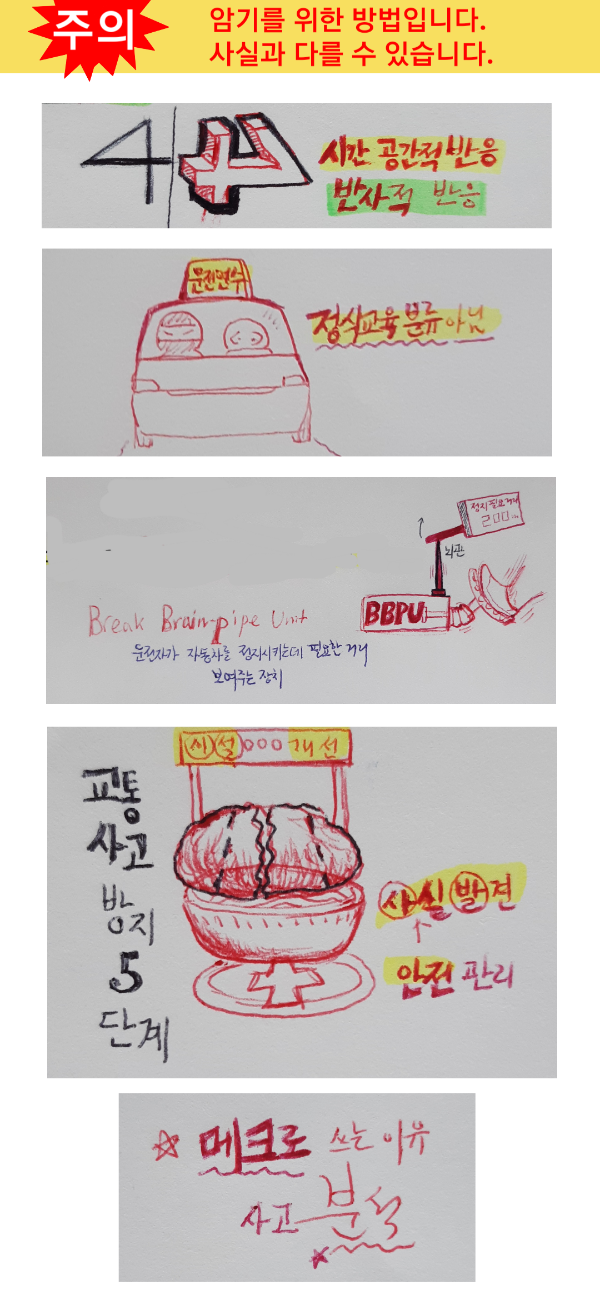 주의
암기를 위한 방법입니다.
사실과 다를 수 있습니다.
4
시간 공간적 반응
반사적 반응
운전연수
정식교육 분류 아님
정지필요거리
200m
뇌관
BBPU
Break Brain-pipe Unit
운전자가 자동차를 정지시키는데 필요한 거리
보여주는 장치
시설○○○개선
교통
사고
방지
5
단계
사실 발견
↑
안전 관리
☆ 메크로 쓰는 이유
사고 분석
★